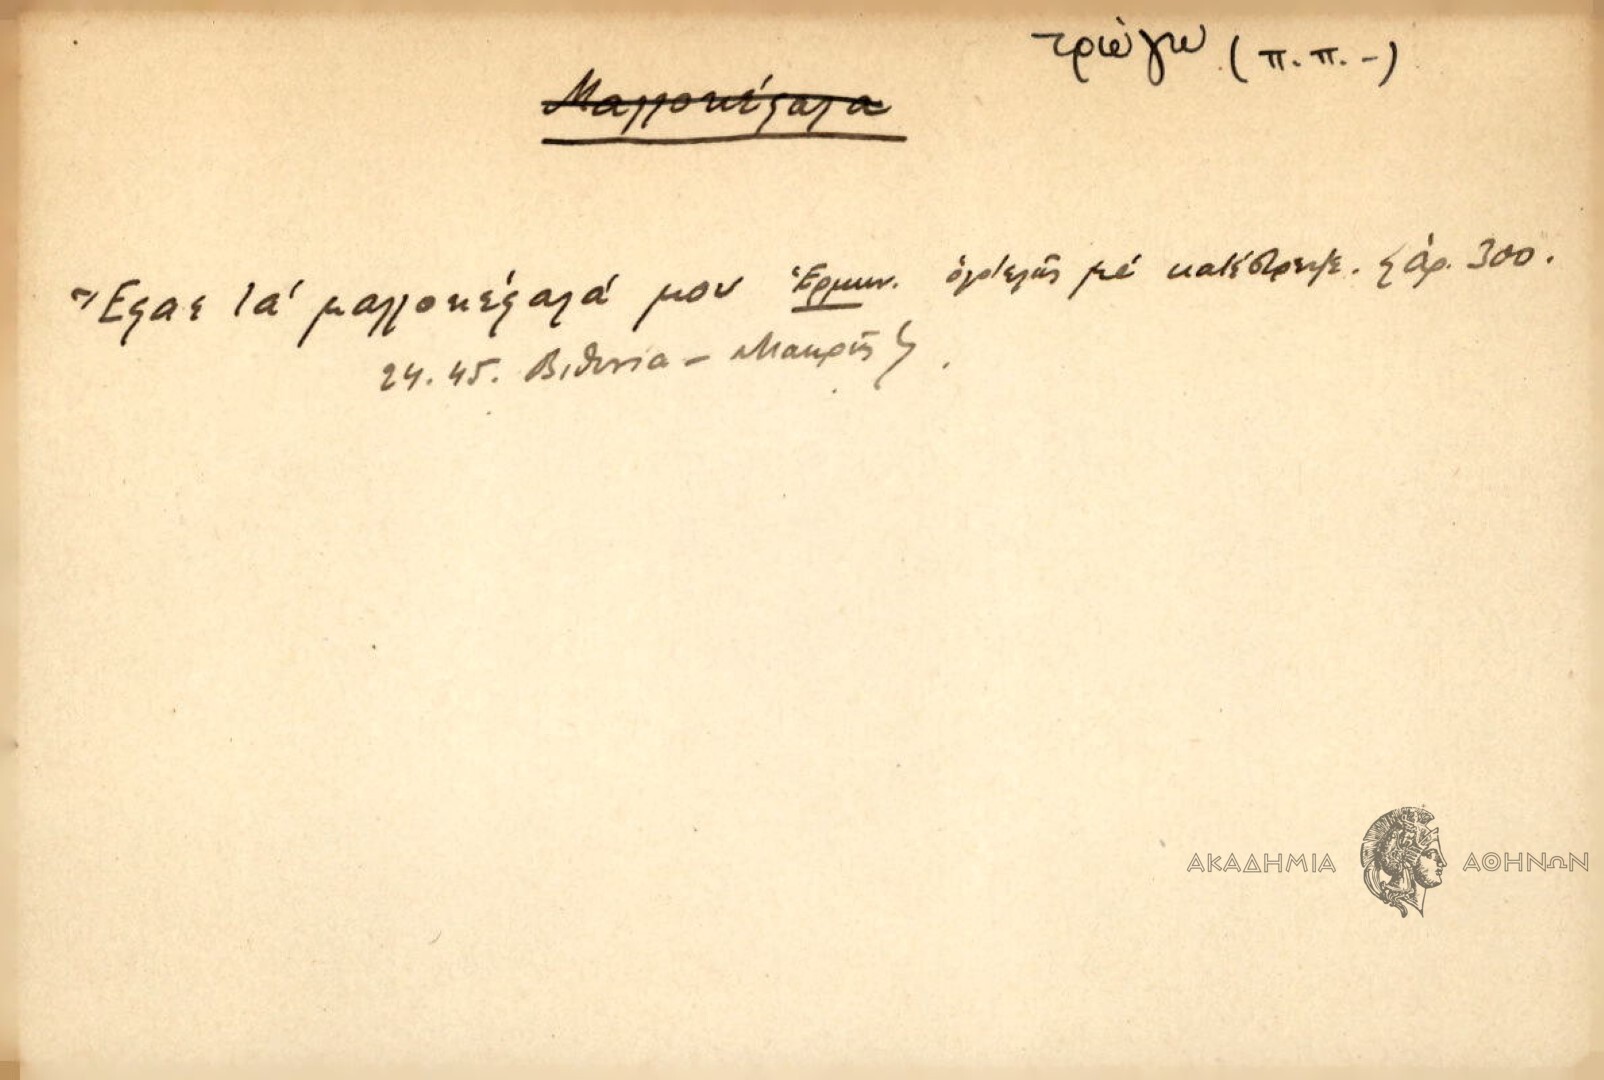 τρώγω (π.π.-)
Μαλλοκέφαλα
Ἔφαε τά μαλλοκέφαλά μου Ἑρμην. ὁλοτελῶς μέ κατέστρεψε. ἀρ. 300.
24.45. Βιθυνία - Μακρῆς
ΑΚΑΔΗΜΙΑ ΑΘΗΝΩΝ